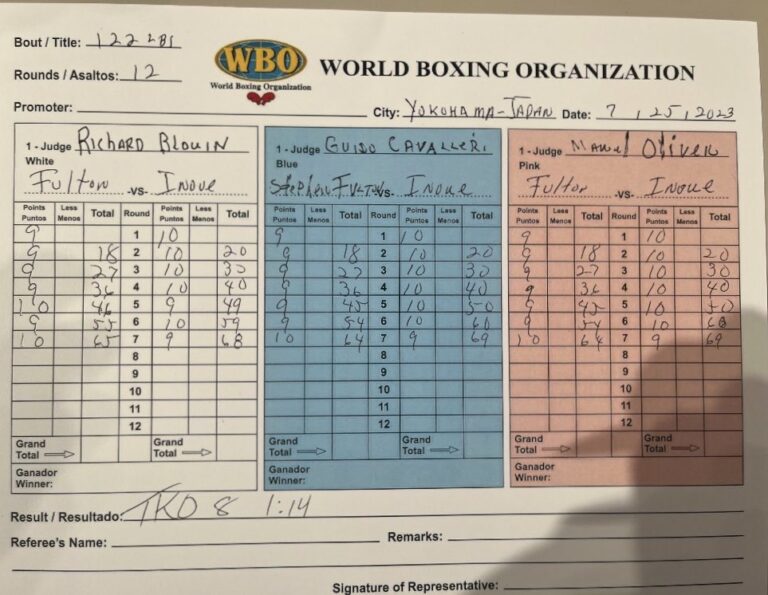 Bout / Title: 122 LBS
WBO
World Boxing Organization
WORLD BOXING ORGANIZATION
Rounds / Asaltos: 12
Promoter: City: YOKOHAMA-JAPAN Date: 7 / 25 / 2023
1 - Judge RICHARD BLOUIN 1 - Judge GUIDO CAVALLERI 1 - Judge Manuel Oliver
White Blue Pink
Fulton -VS- Inoue Stephen Fulton -VS- Inoue Fulton -VS- Inoue
Points Less Total Round Points Less Total Points Less Total Round Points Less Total Points Less Total Round Points Less Total
Puntos Menos Puntos Menos Puntos Menos Puntos Menos Puntos Menos Puntos Menos
9 1 10 9 1 10 9 1 10
9 18 2 10 20 9 18 2 10 20 9 18 2 10 20
9 27 3 10 30 9 27 3 10 30 9 27 3 10 30
9 36 4 10 40 9 36 4 10 40 9 36 4 10 40
10 46 5 9 49 9 45 5 10 50 9 45 5 10 50
9 55 6 10 59 9 54 6 10 60 9 54 6 10 60
10 65 7 9 68 10 64 7 9 69 10 64 7 9 69
8 8 8
9 9 9
10 10 10
11 11 11
12 12 12
Grand Total Grand Total Grand Total Grand Total Grand Total Grand Total
Ganador Ganador Ganador
Winner: Winner: Winner:
Result / Resultado: TKO 8 1:14
Referee's Name: Remarks:
Signature of Representative: